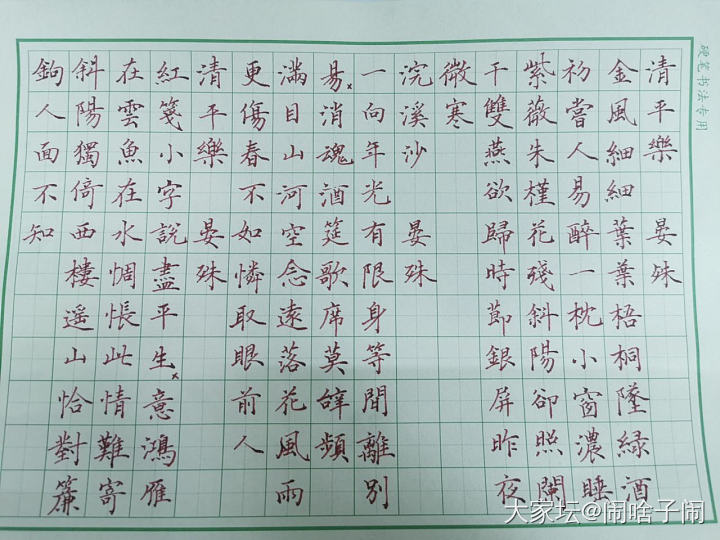 硬笔书法专用
清平樂 晏殊
金風細細葉葉梧桐墜綠酒
初嘗人易醉一枕小窗濃睡
紫薇朱槿花殘斜陽卻照闌
干雙燕欲歸時節銀屏昨夜
微寒
浣溪沙 晏殊
一向年光有限身等間離別
易消魂酒筵歌席莫辭頻
滿目山河空念遠落花風雨
更傷春不如憐取眼前人
清平樂 晏殊
紅箋小字說盡平生意鴻雁
在雲魚在水惆悵此情難寄
斜陽獨倚西樓遙山恰對簾
鉤人面不知
大家坛@闹啥子闹